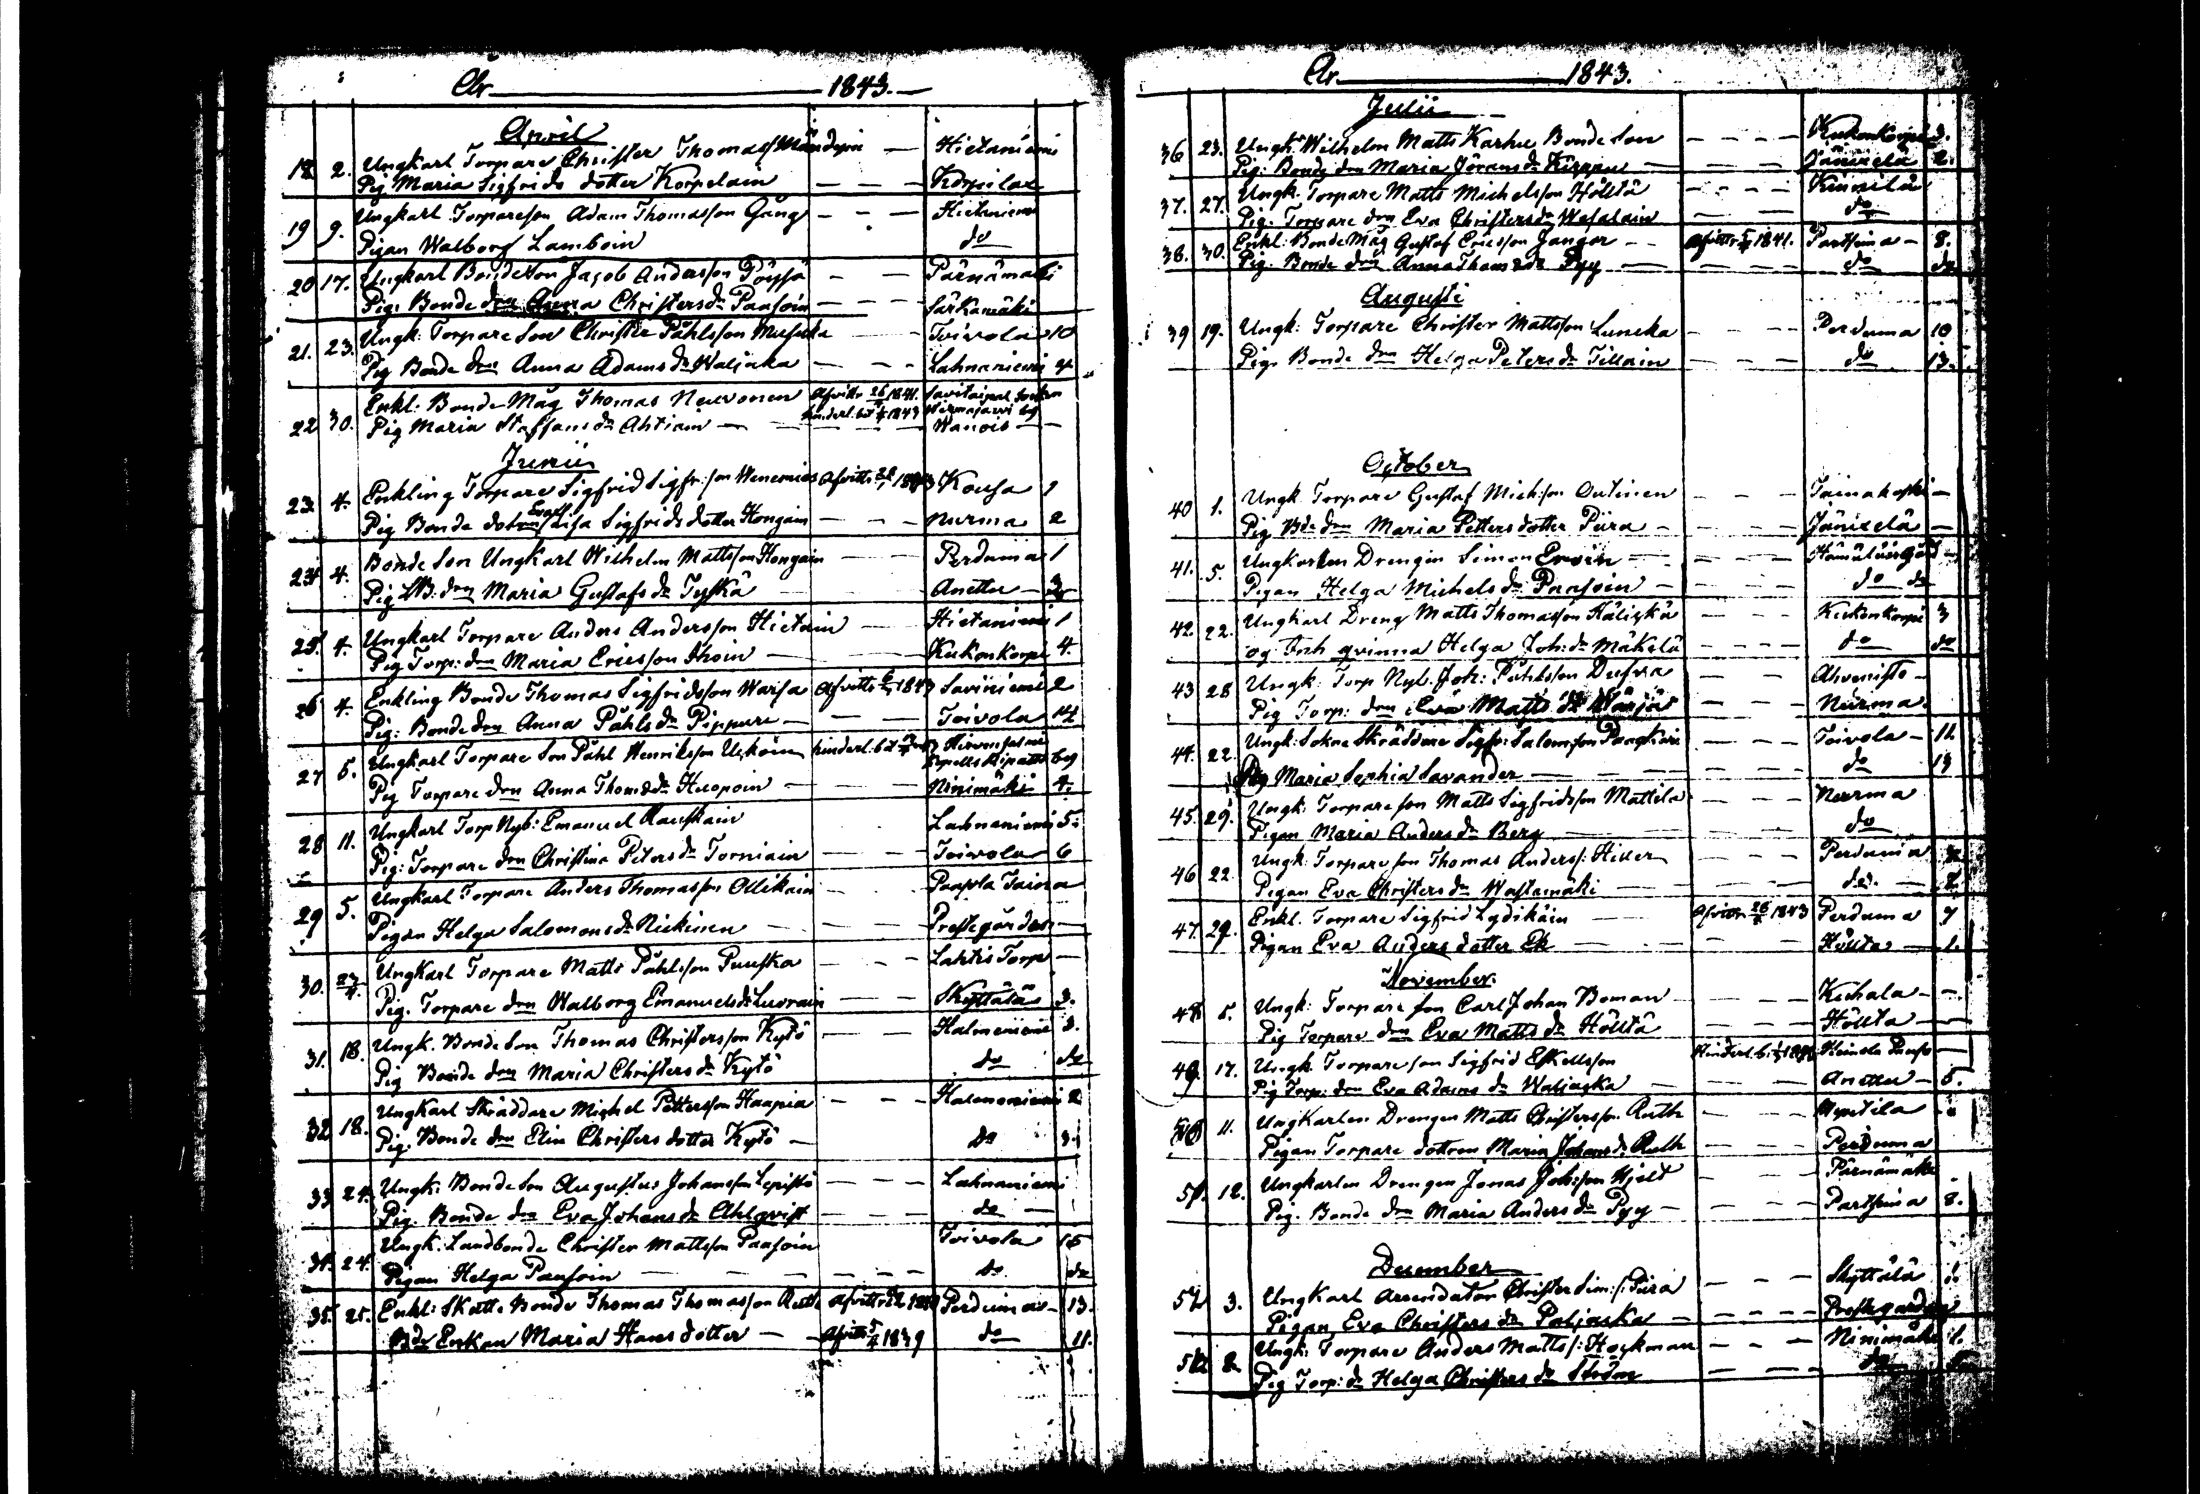 År 1843.
April
18 2. Ungkarl Torpare Christer Thomass. — Hietaniemi
Pig Maria Sigfrids dotter Korpelain — — — Korpilax
19 9. Ungkarl Torpareson Adam Thomasson Gång — — — Hietaniemi
Pigan Walborg Lamboin do
20 17. Ungkarl Bondeson Jacob Andersson Pöyssä — — Pärnämäki
Pig. Bonde dn Anna Christersdr Paasoin — — — Särkamäki
21. 23. Ungk. Torpare Son Christer Påhlsson — Toivola 10
Pig Bonde dn Anna Adamsdr Waljaka — — — Lahnaniemi
22 30. Enkl: Bonde Måg Thomas Neuvonen Afvittr 1841. Savitaipal Socken
hinderl. bet 1843 by
Pig Maria Staffansdr Ahtiain — — — Wanois —
Junii
23. 4. Enkling Torpare Sigfrid Sigfr:son Wenemies Afvittr 1843 Kousa 1
Pig Bonde dotren Lisa Sigfrids dotter Hongain — — Nurma 2
24 4. Bonde Son Ungkarl Wilhelm Mattsson Hongain — — Perduma 1
Pig B. dn Maria Gustafs dr Tyskä — Anettu —
25 4. Ungkarl Torpare Anders Andersson Hietain — — Hietaniemi 1
Pig Torp: dn Maria Ericsson Ihoin — — Kukonkorpi 4.
26 4. Enkling Bonde Thomas Sigfridsson Warsa Afvittr 1843 Saviniemi 2
Pig: Bonde dn Anna Påhls dr Pippuri — — — Toivola 14
27 5. Ungkarl Torpare Son Påhl Henriksson hinderl. bet by
Pig Torpare dn Anna Thomsdr Huopoin — Ninimäki 4.
28 11. Ungkarl Torp Nyb: Emanuel Lahnaniemi 5.
Pig: Torpare dn Christina Peters dr Torniain — — Toivola 6
29 5. Ungkarl Torpare Anders Thomasson Ollikain — — Paasola
Pigan Helga Salomons dr Nickinen — — Prestegården —
30. Ungkarl Torpare Matts Påhlsson Puuska — — — Lahtis Torp —
Pig. Torpare dn Walborg Emanuelsdr — — Skyttälä 3.
31. 18. Ungk. Bonde Son Thomas Christersson Kytö — — Halmeniemi 3.
Pig Bonde dn Maria Christers dr Kytö do do
32 18. Ungkarl Skräddare Michel Pettersson Haapia — — — Halmeniemi 2
Pig. Bonde dn Elin Christers dotter Kytö — do 3.
33 24. Ungk. Bonde Son Augustus Johansson Lepistö — — — Lahnaniemi
Pig. Bonde dn Eva Johans dr Ahlqvist — — — do —
34. 24. Ungk. Landbonde Christer Mattsson Paasoin Toivola 15
Pigan Helga Paasoin — — — — do do
35. 25. Enkl: Skatte Bonde Thomas Thomasson Afvittr Perduma — 13.
Bde Enkan Maria Hans dotter — Afvittr 1839 do 11.
År 1843.
Julii
36 23. Ungk. Wilhelm Matts Karhu Bonde Son — — — — Kukonkorpi 3.
Pig: Bonde dn Maria Jörans dr Kirppu — — Jänielä 2.
37. 27. Ungk. Torpare Matts Michelsson Höltä — — — —
Pig. Torpare dn Eva Christersdr — — do
38. 30. Enkl: Bonde Måg Gustaf Ericsson Janger — — Afvittr 1841. Partsima — 8.
Pig. Bonde dn Anna Thoms dr Pyy — — do do
Augusti
39 19. Ungk: Torpare Christer Mattsson — — — Perduma 10
Pig. Bonde dn Helga Peters dr Tillain — — — do 13.
October
40 1. Ungk Torpare Gustaf Mich:son Outinen — — — —
Pig Bde dn Maria Petters dotter Piira — — — — Jänielä —
41. 5. Ungkarlen Drengen Simon — — — —
Pigan Helga Michels dr Paasoin — — — — do do
42. 22. Ungkarl Dreng Matts Thomasson — — — — Kukonkorpi 3
og Inh qvinna Helga Joh: dr Mäkelä — — — — do do
43 28 Ungk: Torp Nyb. Joh: Påhlsson Dufva — — — Ahvenisto —
Pig Torp: dn Eva Matts dr — — — Nurma
44. 22. Ungk: Sokne Skräddare Sigfr: Salomsson — — Toivola — 11.
Pig Maria Sophia Savander — — — do 13
45. 29. Ungk: Torpare son Matts Sigfridsson Mattila — — — Nurma
Pigan Maria Anders dr Berg — — — do
46 22 Ungk: Torpare son Thomas Anders/: — — — Perduma
Pigan Eva Christers dr Wastamäki — — — — do.
47. 29. Enkl. Torpare Sigfrid Lydikäin — Afvittr 1843 Perduma 7
Pigan Eva Anders dotter Ek — Höltta 1.
November.
48 5. Ungk: Torpare son Carl Johan Boman — — — — Kichala — —
Pig Torpare dn Eva Matts dr Höltä — — — Höltta —
49. 17. Ungk. Torpare son Sigfrid Eskellsson Hinderl. b. Heinola
Pig Torp: dn Eva Adams dr Waljacka — — — Anettu — 5.
11. Ungkarlen Drengen Matts Christersson Ruth — — —
Pigan Torpare dottren Maria Johans dr Ruth — — Perduma
51. 12. Ungkarlen Drengen Jonas Joh:son Hjelt — — Pärnämäki
Pig: Bonde dn Maria Anders dr Pyy — — — — Partsima 8.
December
52 3. Ungkarl Arrendator Christer Sim:/: Piira — — — Skyttälä
Pigan Eva Christers dr Paljaska — — — — Prostgården
Ungk: Torpare Anders Matts/: Hockman — — — Ninimäki
Pig Torp: dr Helga Christers dr Ström — — — do